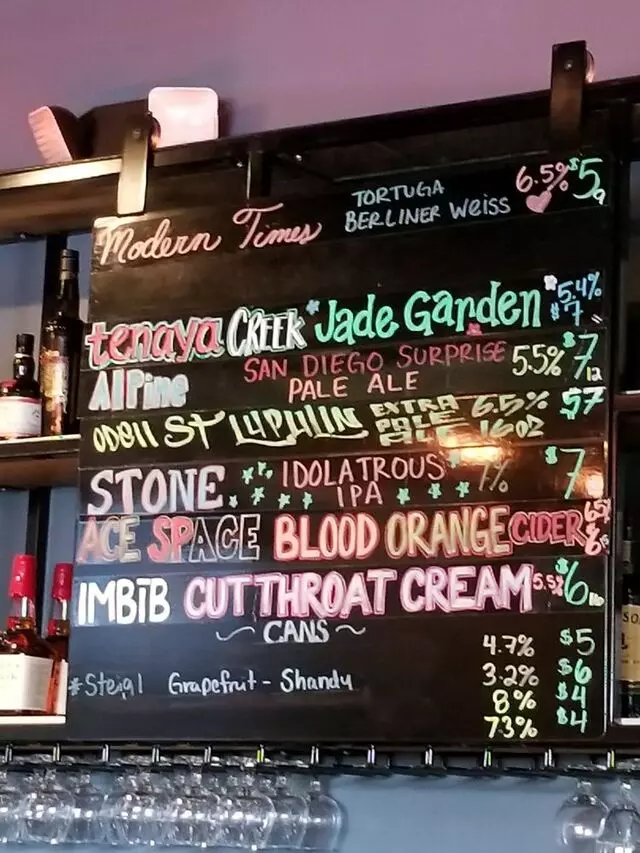 Modern Times TORTUGA BERLINER Weiss 6.5% $5 9
tenaya CREEK Jade Garden 5.4% $7
AlPine SAN DIEGO SURPRISE PALE ALE 5.5% $7 12
Odell ST LUPULIN EXTRA PALE ALE 6.5% 16oz $7
STONE IDOLATROUS IPA 7% $7
ACE SPACE BLOOD ORANGE CIDER
IMBIB CUTTHROAT CREAM 5.5% $6 16
~ CANS ~
4.7% $5
*Steigl Grapefruit - Shandy 3.2% $6
8% $4
73% $4